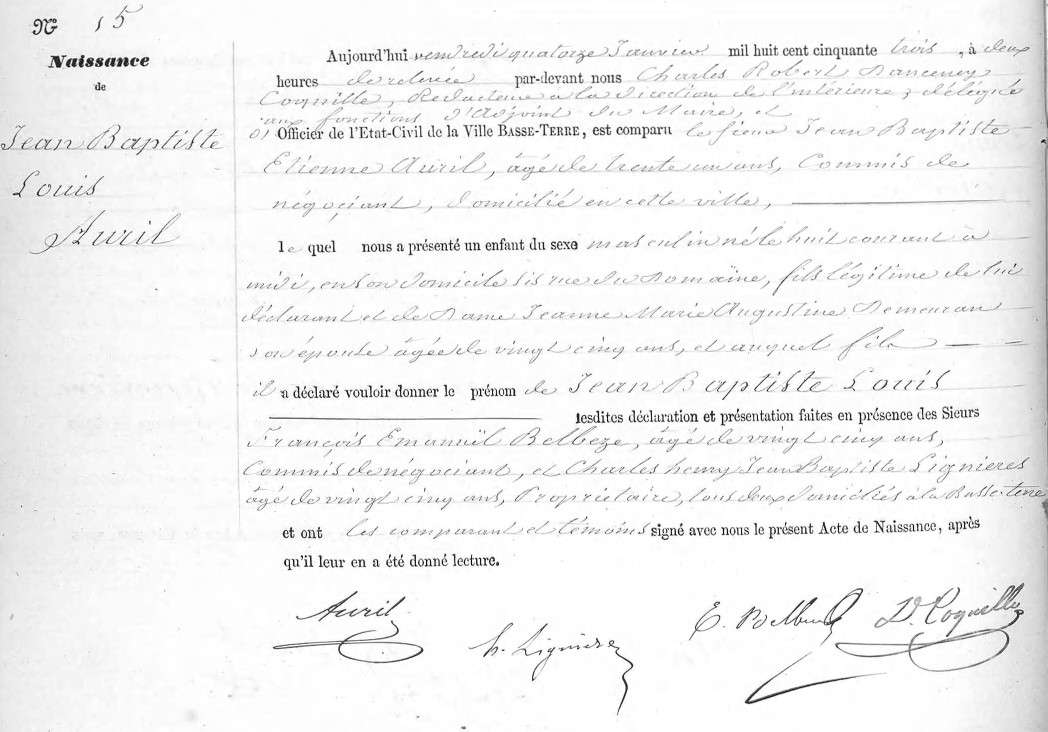 N° 15
Naissance
de
Jean Baptiste
Louis
Auril
Aujourd'hui vendredi quatorze Janvier mil huit cent cinquante trois, à deux
heures de relevée par-devant nous Charles Robert Danceney
Coquille, Rédacteur à la direction de l'intérieure, délégué
aux fonctions d'Adjoint du Maire, et
Officier de l'Etat-Civil de la Ville BASSE-TERRE, est comparu le sieur Jean Baptiste
Etienne Auril, âgé de trente un ans, Commis de
négoçiant, domicilié en cette ville,
le quel nous a présenté un enfant du sexe masculin né le huit courant à
midi, en son domicile sis rue du Domaine, fils légitime de lui
déclarant et de Dame Jeanne Marie Augustine Demeuran
son épouse âgée de vingt cinq ans, et auquel fils
il a déclaré vouloir donner le prénom de Jean Baptiste Louis
lesdites déclaration et présentation faites en présence des Sieurs
François Emanuïl Belbeze, âgé de vingt cinq ans,
Commis de négociant, et Charles henry Jean Baptiste Lignieres
âgé de vingt cinq ans, Propriétaire, tous deux domiciliés à la Basse-terre
et ont les comparant et témoins signé avec nous le présent Acte de Naissance, après
qu'il leur en a été donné lecture.
Auril
h. Lignieres
E. Belbeze
D. Coquille